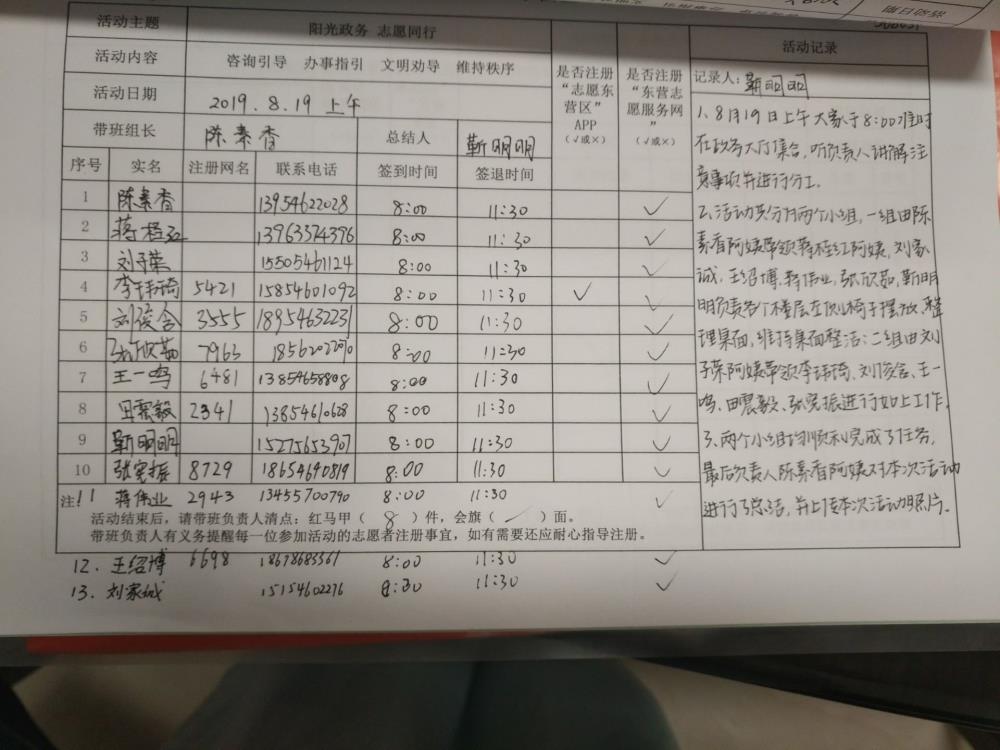 每日签况
活动主题 阳光政务 志愿同行
活动内容 咨询引导 办事指引 文明劝导 维持秩序
活动日期 2019.8.19 上午
带班组长 陈素香 总结人 靳明明
是否注册“志愿东营区”APP（√或×）
是否注册“东营志愿服务网”（√或×）
序号 实名 注册网名 联系电话 签到时间 签退时间
1 陈素香 13954622028 8:00 11:30 √
2 蒋桂红 13963574396 8:00 11:30 √
3 刘子荣 15505461124 8:00 11:30 √
4 李玮琦 5421 15854601092 8:00 11:30 √ √
5 刘俊含 3555 18954632231 8:00 11:30 √
6 张欣茹 7963 18562022070 8:00 11:30 √
7 王一鸣 6481 13854658808 8:00 11:30 √
8 田震毅 2341 13854610628 8:00 11:30 √
9 靳明明 15275653907 8:00 11:30 √
10 张宪振 8729 18654690819 8:00 11:30 √
11 蒋伟业 2943 13455700790 8:00 11:30 √
注：
活动结束后，请带班负责人清点：红马甲（ 8 ）件，会旗（ ／ ）面。
带班负责人有义务提醒每一位参加活动的志愿者注册事宜，如有需要还应耐心指导注册。
12. 王绍博 6698 18678683361 8:00 11:30 √
13. 刘家诚 15154602276 8:30 11:30 √
活动记录
记录人：靳明明
1、8月19日上午大家于8:00准时
在政务大厅集合，听负责人讲解注
意事项并进行分工。
2、活动共分为两个小组，一组由陈
素香阿姨带领蒋桂红阿姨，刘家
诚，王绍博，蒋伟业，张欣茹，靳明
明负责各个楼层左侧椅子摆放、整
理桌面，维持桌面整洁；二组由刘
子荣阿姨带领李玮琦、刘俊含、王一
鸣、田震毅、张宪振进行如上工作。
3、两个小组均顺利完成了任务，
最后负责人陈素香阿姨对本次活动
进行了总结，并上传本次活动照片。